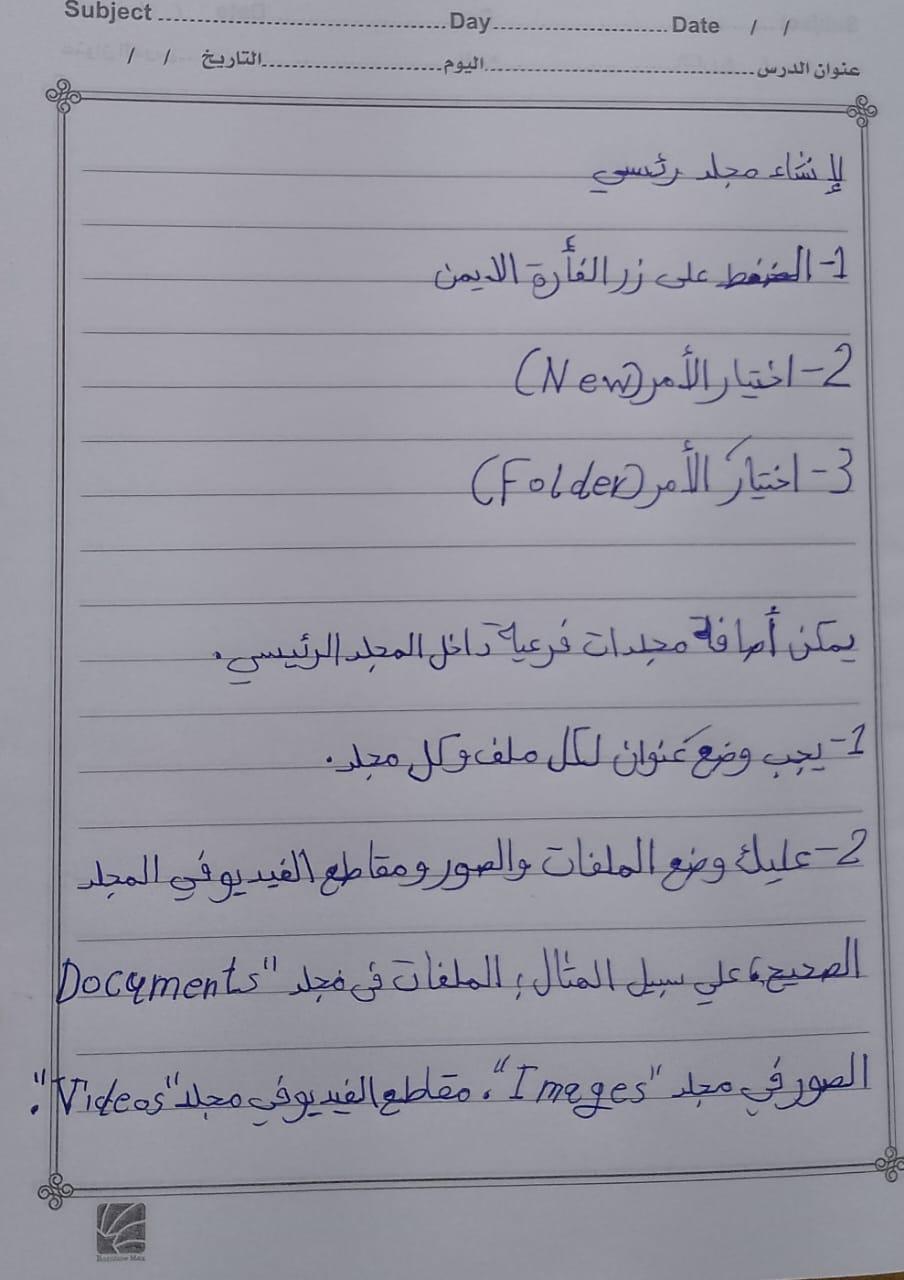 Subject ........................ Day ................ Date / /
عنوان الدرس ........................ اليوم ................ التاريخ / /
لإنشاء مجلد رئسي
1- الضغط على زر الفأرة الايمن
2- اختيار الأمر (New)
3- اختيار الأمر (Folder)
يمكن أضافة مجلدات فرعية داخل المجلد الرئيسي.
1- يجب وضع عنوان لكل ملف وكل مجلد.
2- عليك وضع الملفات والصور ومقاطع الفيديو في المجلد
الصحيح، علي سبيل المثال؛ الملفات في مجلد "Documents
الصور في مجلد "Images"، مقاطع الفيديو في مجلد "Videos".
Rainbow Max